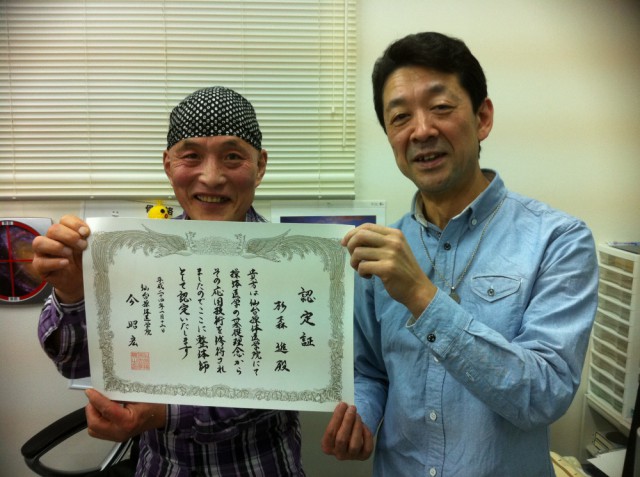 認定証
杉森 進殿
貴方は仙台操体医学院にて
操体医学の基礎理念から
その応用技術を修得され
ましたのでここに整体師
として認定いたします
仙台操体医学院
今 昭宏